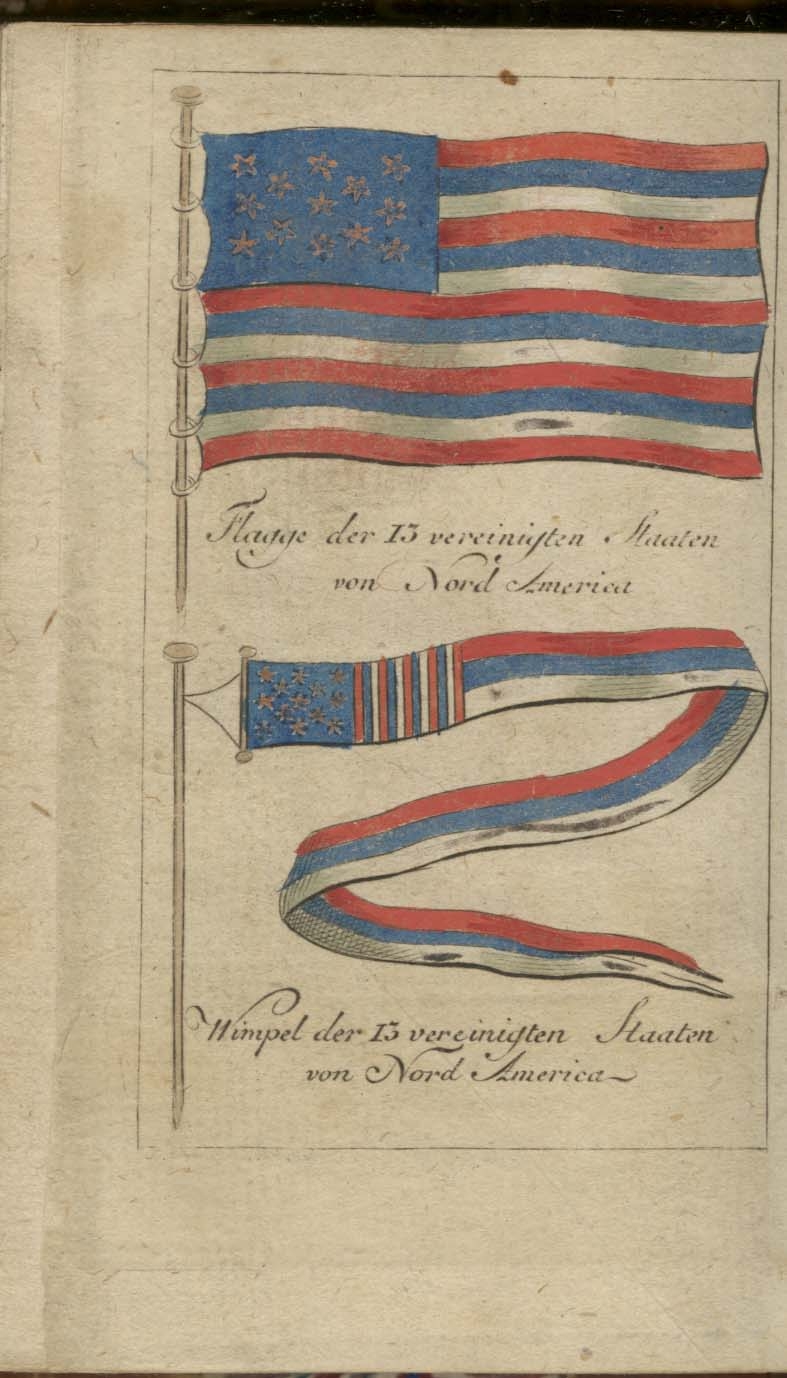 Flagge der 13 vereinigten Staaten
von Nord America
Wimpel der 13 vereinigten Staaten
von Nord America